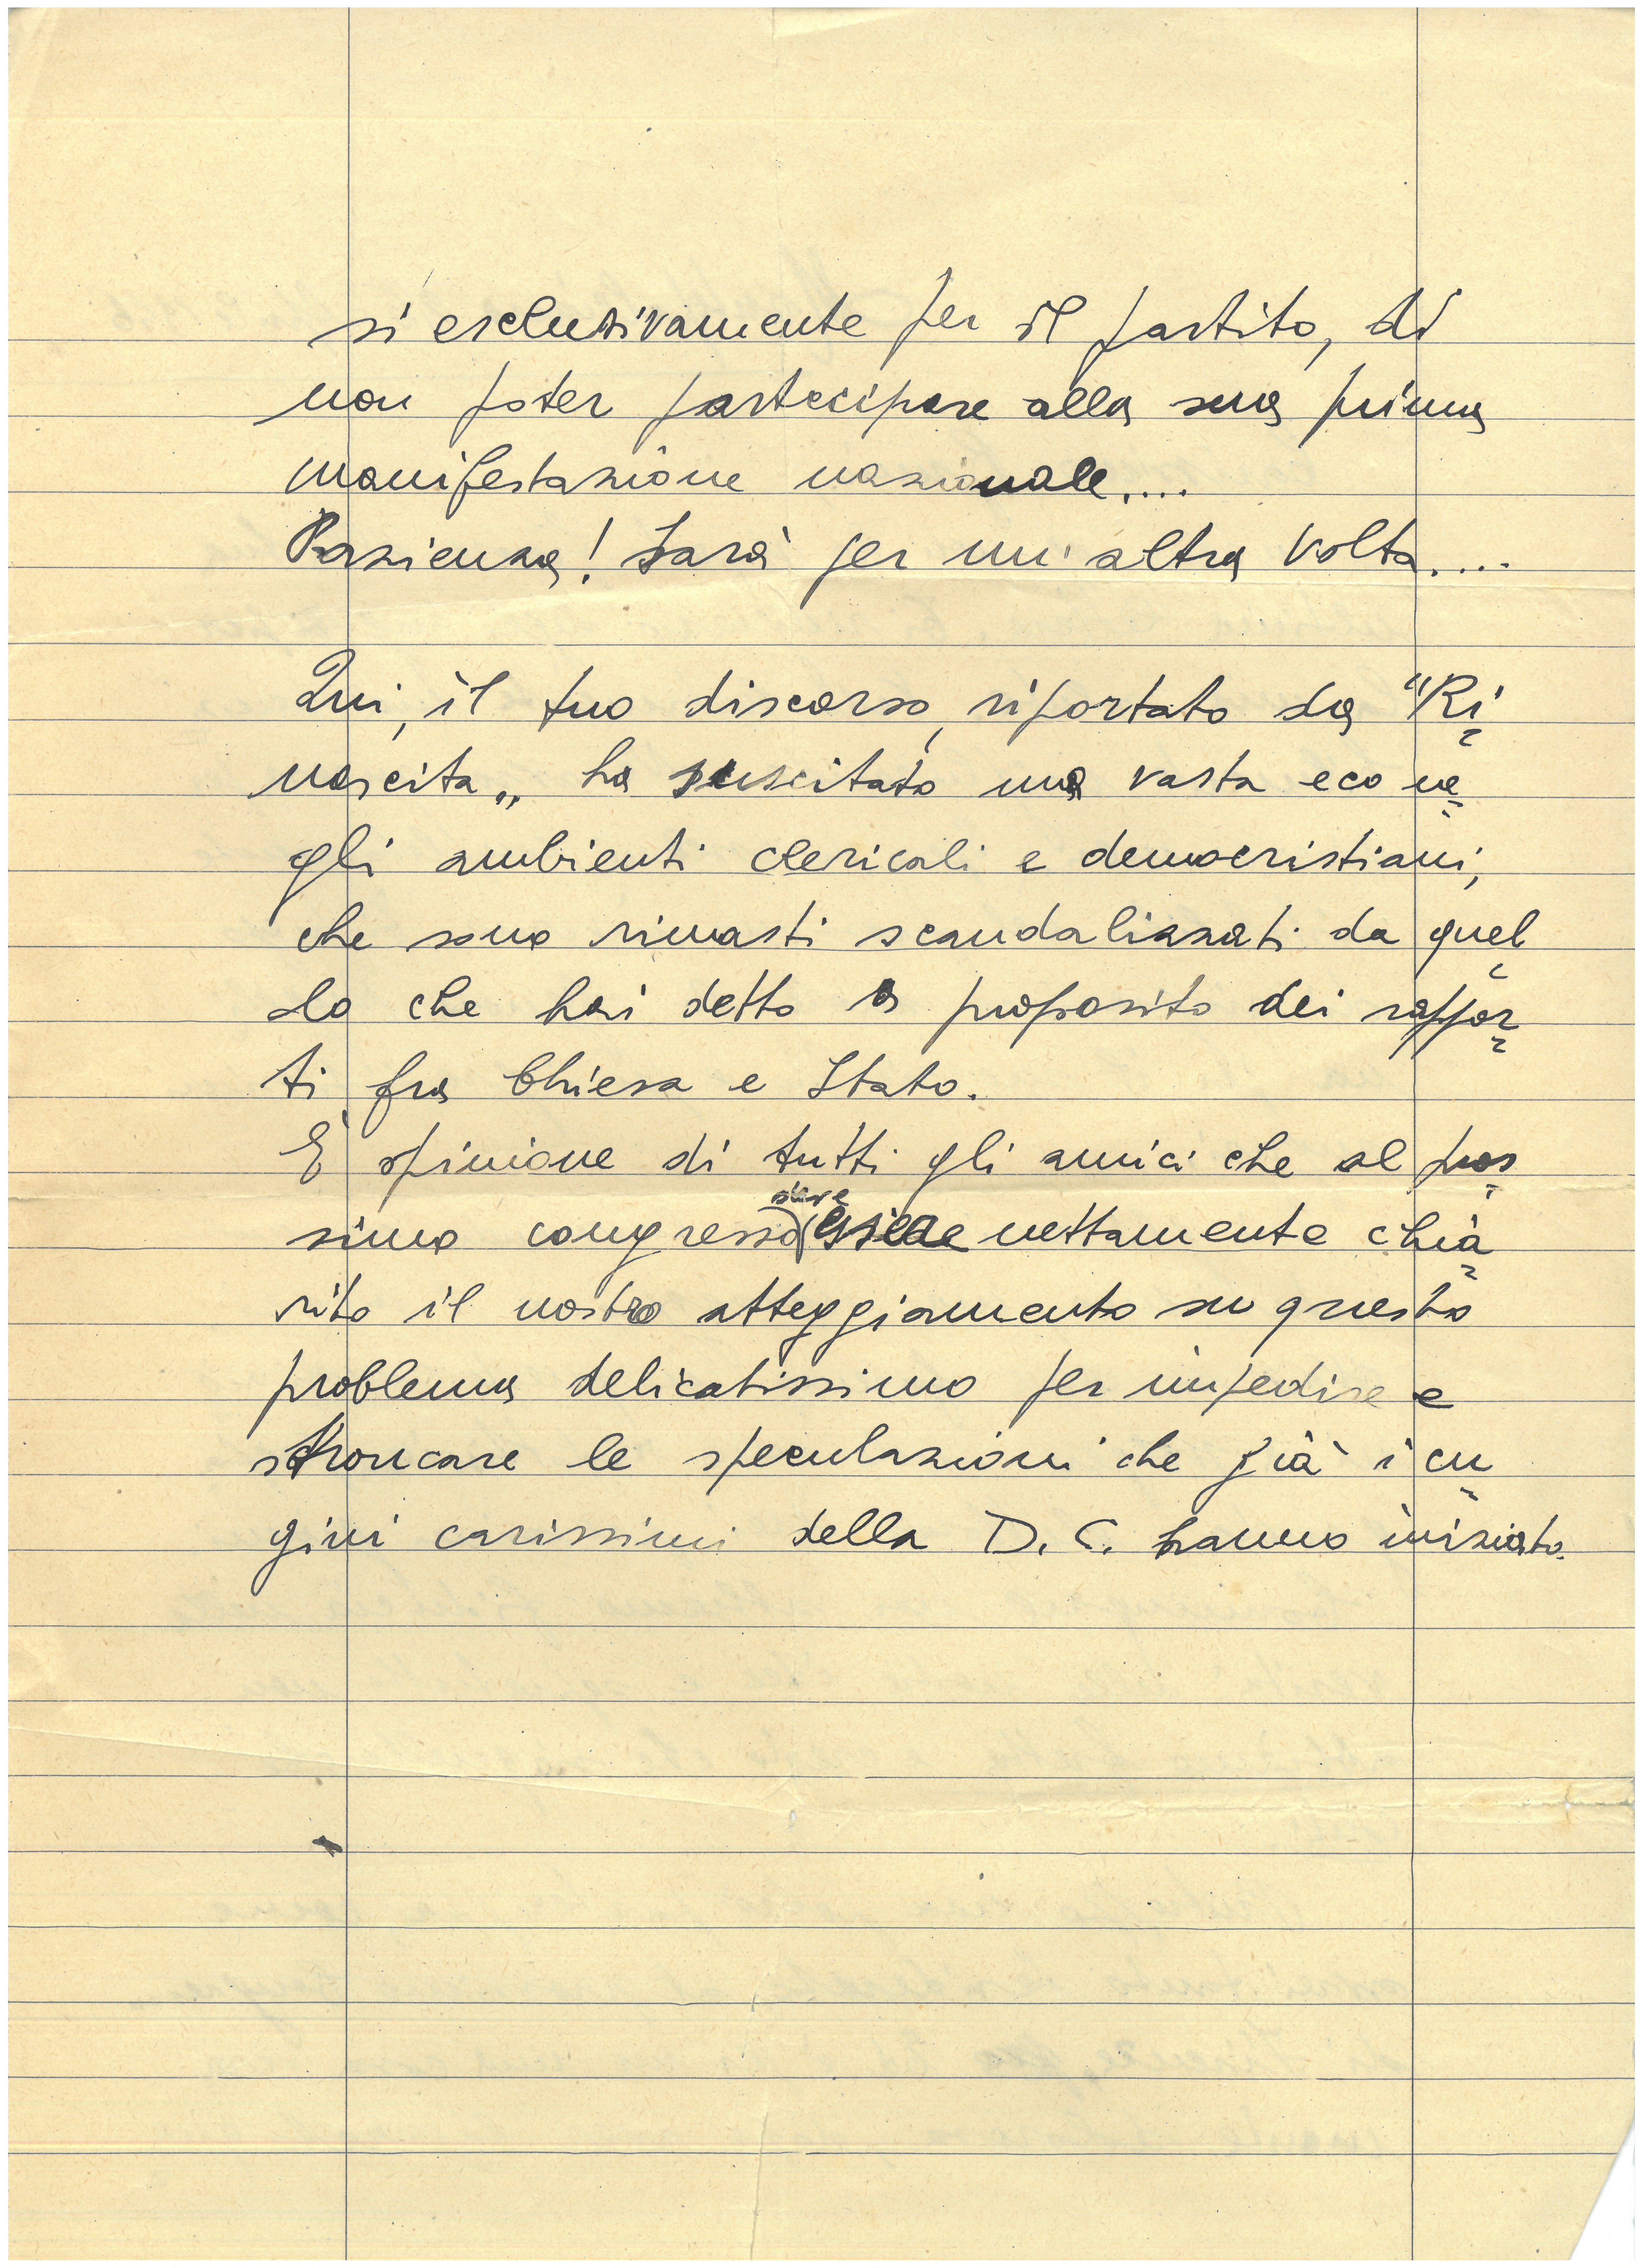 si esclusivamente per il partito, di
non poter partecipare alla sua prima
manifestazione nazionale....
Pazienza! Sarà per un'altra volta....
Qui, il tuo discorso, riportato da "Ri
nascita„ ha suscitato una vasta eco ne
gli ambienti clericali e democristiani,
che sono rimasti scandalizzati da quel
lo che hai detto a proposito dei rappor
ti fra Chiesa e Stato.
È opinione di tutti gli amici che al pros
simo congresso nettamente chia
rito il nostro atteggiamento su questo
problema delicatissimo per impedire e
stroncare le speculazioni che già i cu
gini carissimi della D. C. hanno iniziato.